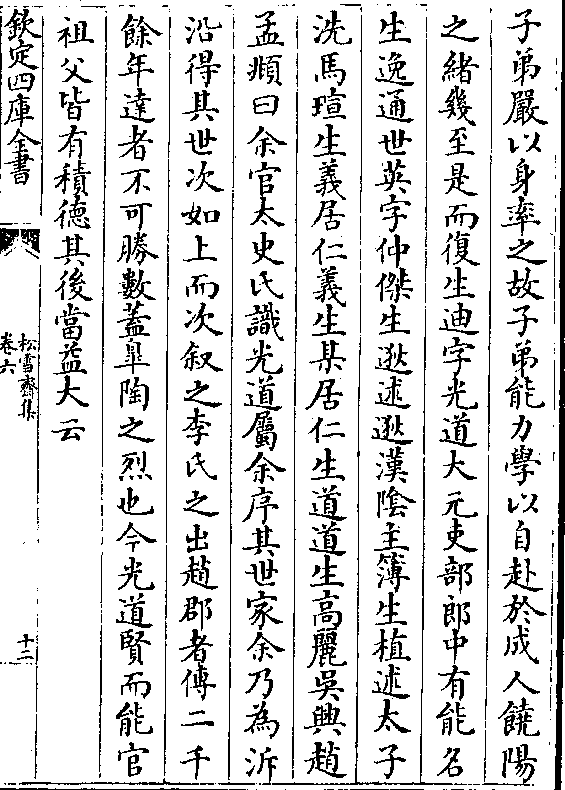 子弟嚴以身率之故子弟能力學以自赴於成人饒陽
之緒幾至是而復生迪字光道大元吏部郎中有能名
生逸通世英字仲傑生逖述逖漢陰主簿生植述太子
洗馬瑄生義居仁義生某居仁生道道生高麗吳興趙
孟頫曰余官太史氏識光道屬余序其世家余乃為泝
沿得其世次如上而次叙之李氏之出趙郡者傳二千
餘年達者不可勝數蓋臯陶之烈也今光道賢而能官
祖父皆有積德其後當益大云
欽定四庫全書
松雪齋集
卷六
十二